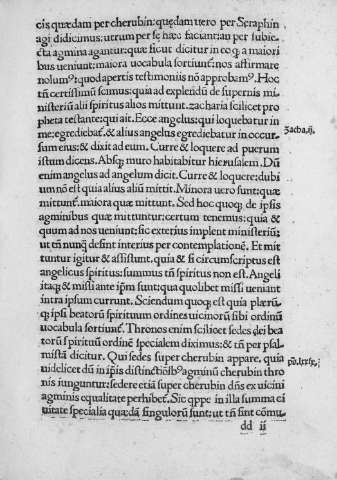 cis quædam per cherubin: quædam uero per Seraphin
agi didicimus: utrum per se hæc faciant: an per subie-
cta agmina agantur: quæ sicut dicitur in eo q a maiori
bus ueniunt: maiora uocabula sortiunt: nos affirmare
nolumꝰ: quod apertis testimoniis nõ approbamꝰ. Hoc
tñ certissimũ scimus: quia ad explendũ de supernis mi-
nisteriũ alii spiritus alios mittunt. zacharia scilicet pro
pheta testante: qui ait. Ecce angelus: qui loquebatur in
me: egrediebat̃. & alius angelus egrediebatur in occur-
sum eius: & dixit ad eum. Curre & loquere ad puerum
istum dicens. Absq; muro habitabitur hierusalem. Dũ
enim angelus ad angelum dicit. Curre & loquere: dubi
um nõ est quia alius aliũ mittit. Minora uero sunt: quæ
mittunt̃. maiora quæ mittunt. Sed hoc quoq; de ipsis
agminibus quæ mittuntur: certum tenemus: quia &
quum ad nos ueniunt: sic exterius implent ministeriũ:
ut tñ nunq̃ desint interius per contemplationẽ. Et mit
tuntur igitur & assistunt. quia & si circumscriptus est
angelicus spiritus: summus tñ spiritus non est. Angeli
itaq; & missi ante ip̃m sunt: quia quolibet missi ueniant
intra ipsum currunt. Sciendum quoq; est quia plærũ-
q; ipsi beatorũ spirituum ordines uicinorũ sibi ordinũ
uocabula sortiunt̃. Thronos enim scilicet sedes dei bea
torũ spirituũ ordinẽ specialem diximus: & tñ per psal-
mistã dicitur. Qui sedes super cherubin appare. quia
uidelicet dũ in ip̃is distinctiõibꝰ agminũ cherubin thro
nis iunguntur: sedere etiã super cherubin dñs ex uicini
agminis equalitate perhibet̃. Sic q̃ppe in illa summa ci
uitate specialia quædã singulorũ sunt: ut tñ sint cõmu-
dd ii
Zacha.ii.
p̃s.lxxix.